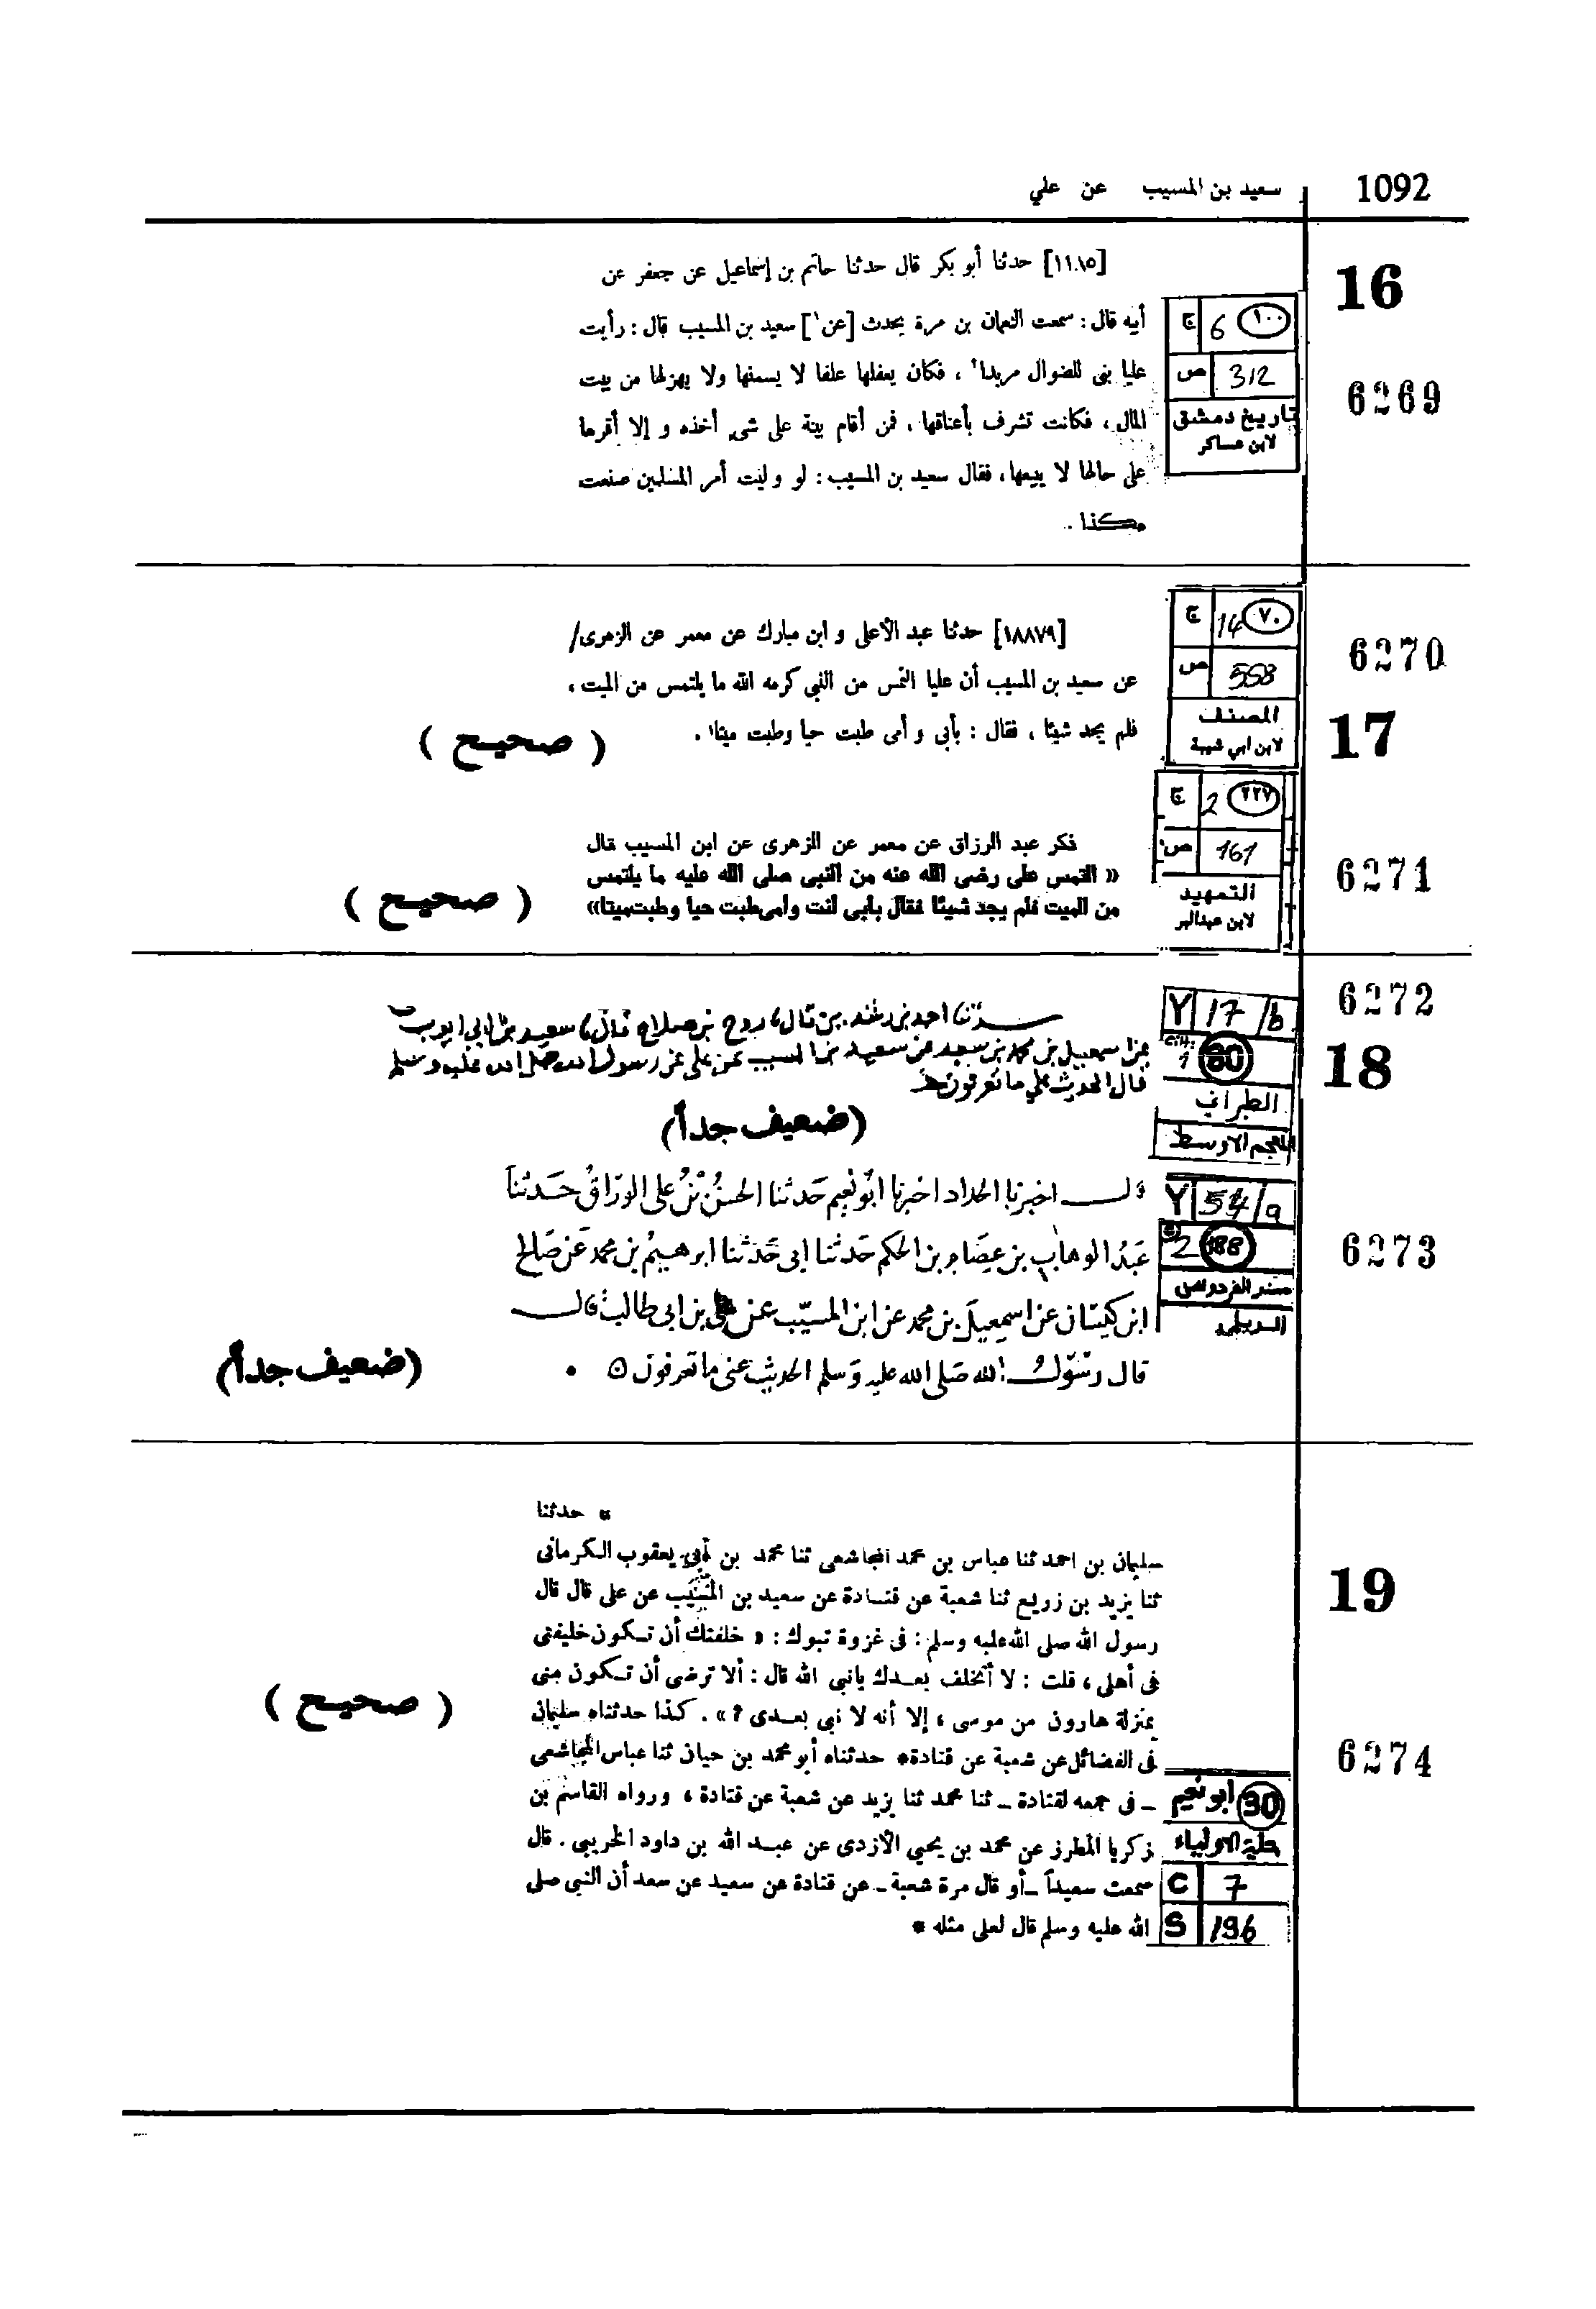 1092
سعيد بن المسيب عن علي
16
[١١٨٥] حدثنا أبو بكر قال حدثنا حاتم بن إسماعيل عن جعفر عن
أبيه قال : سمعت النعمان بن مرة يحدث [عن١] سعيد بن المسيب قال : رأيت
عليا بنى للضوال مربدا٢ ، فكان يعفلها علفا لا يسمنها ولا يهزلها من بيت
المال ، فكانت تشرف بأعناقها ، فمن أقام بينة على شىء أخذه و إلا أقرها
على حالها لا يبيعها ، فقال سعيد بن المسيب : لو وليت أمر المسلمين صنعت
هكذا .
ج 6 ١٠٠
ص 312
تاريخ دمشق
لابن عساكر
6269
6270
17
ج 14 ٧٠
ص 558
المصنف
لابن ابي شيبة
[١٨٨٧٩] حدثنا عبد الأعلى و ابن مبارك عن معمر عن الزهرى/
عن سعيد بن المسيب أن عليا التمس من النبي كرمه الله ما يلتمس من الميت ،
فلم يجد شيئا ، فقال : بأبى و أمى طبت حيا وطبت ميتا١ .
( صحيح )
ج 2 ٢٢٧
ص 161
التمهيد
لابن عبدالبر
6271
ذكر عبد الرزاق عن معمر عن الزهرى عن ابن المسيب قال
« التمس على رضى الله عنه من النبى صلى الله عليه ما يلتمس
من الميت فلم يجد شيئا فقال بأبى أنت وأمى طبت حيا وطبت ميتا»
( صحيح )
6272
18
Y 17/b
1 60
الطبراني
المعجم الاوسط
قال روح بن صلاح قال سعيد بن ابي ايوب
عن اسمعيل بن محمد بن سعد عن سعيد بن المسيب عن علي عن رسول الله صلى الله عليه وسلم
قال الحديث علي ما تعرفون
(ضعيف جداً)
Y 54/a
2 188
مسند الفردوس
الديلمي
6273
قال اخبرنا الحداد اخبرنا ابو نعيم حدثنا الحسن بن على الوراق حدثنا
عبد الوهاب بن عصام بن الحكم حدثنا ابي حدثنا ابرهيم بن محمد عن صالح
ابن كيسان عن اسمعيل بن محمد عن ابن المسيب عن علي بن ابي طالب قال
قال رسول الله صلى الله عليه وسلم الحديث عنى ما تعرفون
(ضعيف جداً)
19
* حدثنا
سليمان بن احمد ثنا عباس بن محمد المجاشعى ثنا محمد بن أبي يعقوب الكرمانى
ثنا يزيد بن زريع ثنا شعبة عن قتادة عن سعيد بن المسيب عن على قال قال
رسول الله صلى الله عليه وسلم : فى غزوة تبوك : « خلفتك أن تكون خليفتى
فى أهلى ، قلت : لا أتخلف بعدك يانبى الله قال : ألا ترضى أن تكون منى
بمنزلة هارون من موسى ، إلا أنه لا نبى بعدى ؟ » . كذا حدثناه سليمان
فى الفضائل عن شعبة عن قتادة* حدثناه أبو محمد بن حيان ثنا عباس المجاشعى
ـ فى جمعه لقتادة ـ ثنا محمد ثنا يزيد عن شعبة عن قتادة ، ورواه القاسم بن
زكريا المطرز عن محمد بن يحيى الأزدى عن عبد الله بن داود الخريبى . قال
سمعت سعيداً ـ أو قال مرة شعبة ـ عن قتادة عن سعيد عن سعد أن النبى صلى
الله عليه وسلم قال لعلى مثله *
( صحيح )
6274
30 أبو نعيم
حلية الاولياء
C 7
S 196